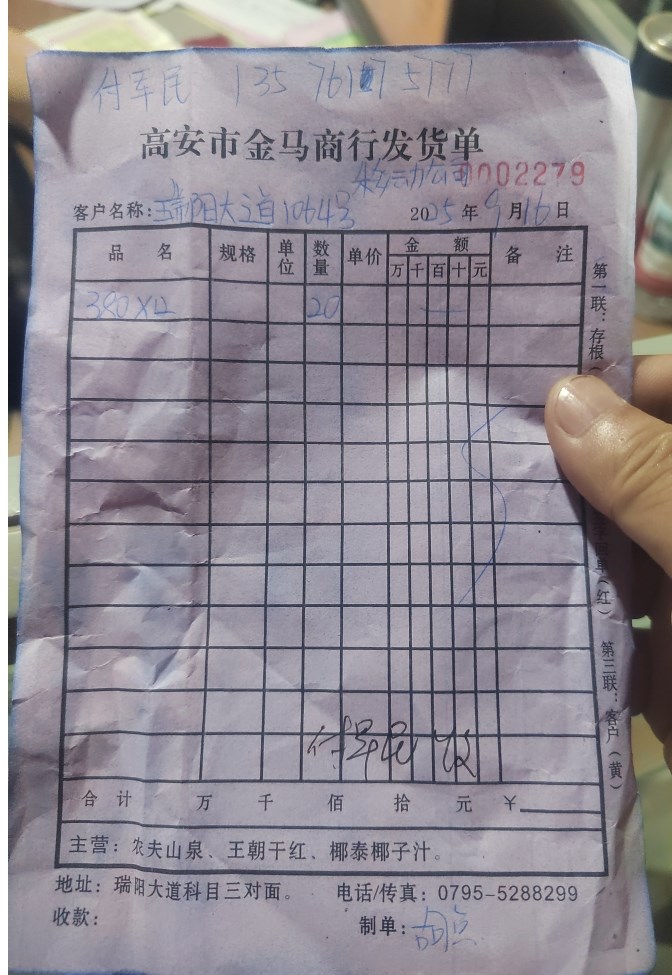 付军民 135 7611 5777
高安市金马商行发货单
移动公司 0002279
客户名称:瑞阳大道1064号 2025年9月16日
品 名 规格 单位 数量 单价 金 额 备 注
万 千 百 十 元
380X12 20
第一联:存根(
单(红)
第三联:客户(黄)
付军民 收
合 计 万 千 佰 拾 元 ¥
主营:农夫山泉、王朝干红、椰泰椰子汁。
地址:瑞阳大道科目三对面。 电话/传真:0795-5288299
收款: 制单: